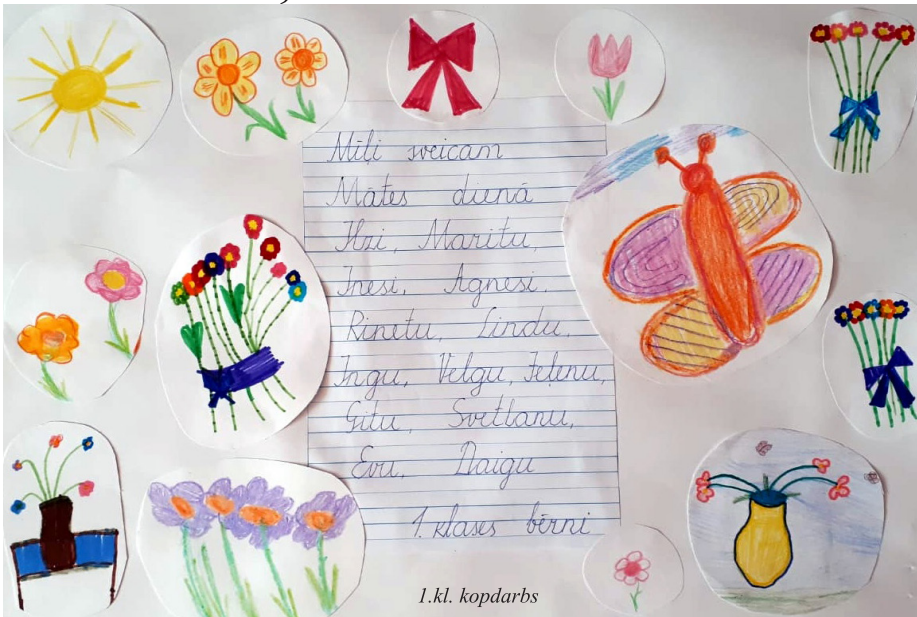 Mīļi sveicam
Mātes dienā
Ilzi, Maritu,
Inesi, Agnesi,
Rinetu, Lindu,
Ingu, Velgu, Jeļenu,
Gitu, Svetlanu,
Evu, Daigu
1. klases bērni
1.kl. kopdarbs